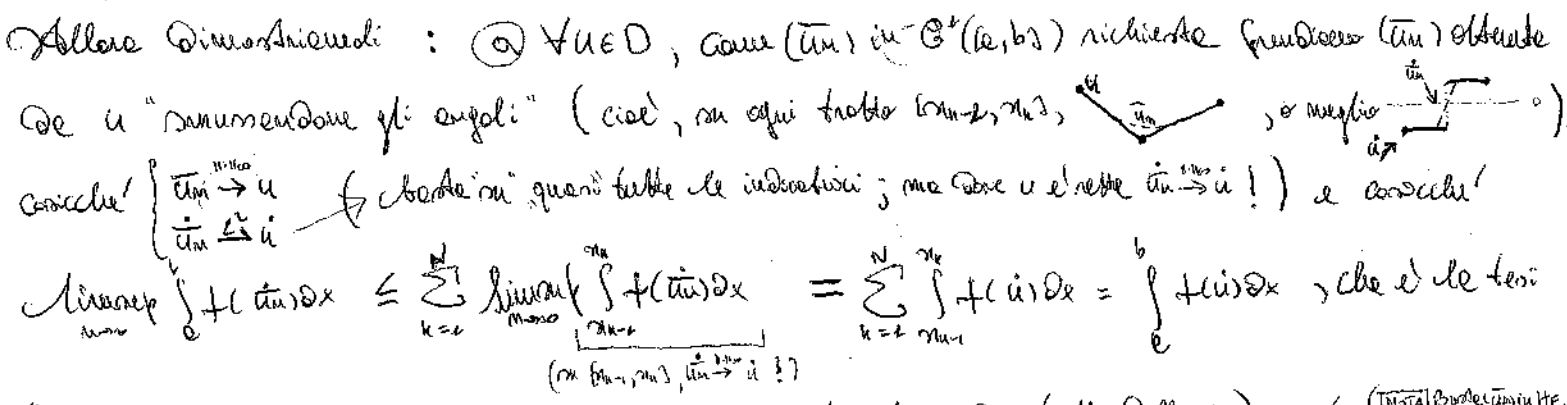 Allora Dimostriamoli : ⓐ ∀u∈D, come (ūₙ) in C¹([a,b]) richiesta prendiamo (ūₙ) ottenuta
da u "smussandone gli angoli" (cioè, su ogni tratto [xₖ₋₁, xₖ], u ūₙ , o meglio u̇ ū̇ₙ 0)
cosicché { ūₙ →^{‖·‖∞} u ; ū̇ₙ →^{L²} u̇ ( basta su quasi tutte le indicativi ; ma dove u è retta ū̇ₙ →^{‖·‖∞} u̇ ! ) e cosicché
limsup_{n→∞} ∫ₐᵇ f(ū̇ₙ)dx ≤ Σ_{k=1}^N limsup_{n→∞} ∫_{xₖ₋₁}^{xₖ} f(ū̇ₙ)dx = Σ_{k=1}^N ∫_{xₖ₋₁}^{xₖ} f(u̇)dx = ∫ₐᵇ f(u̇)dx , che è la tesi
(su [xₖ₋₁, xₖ], ū̇ₙ →^{‖·‖∞} u̇ !)